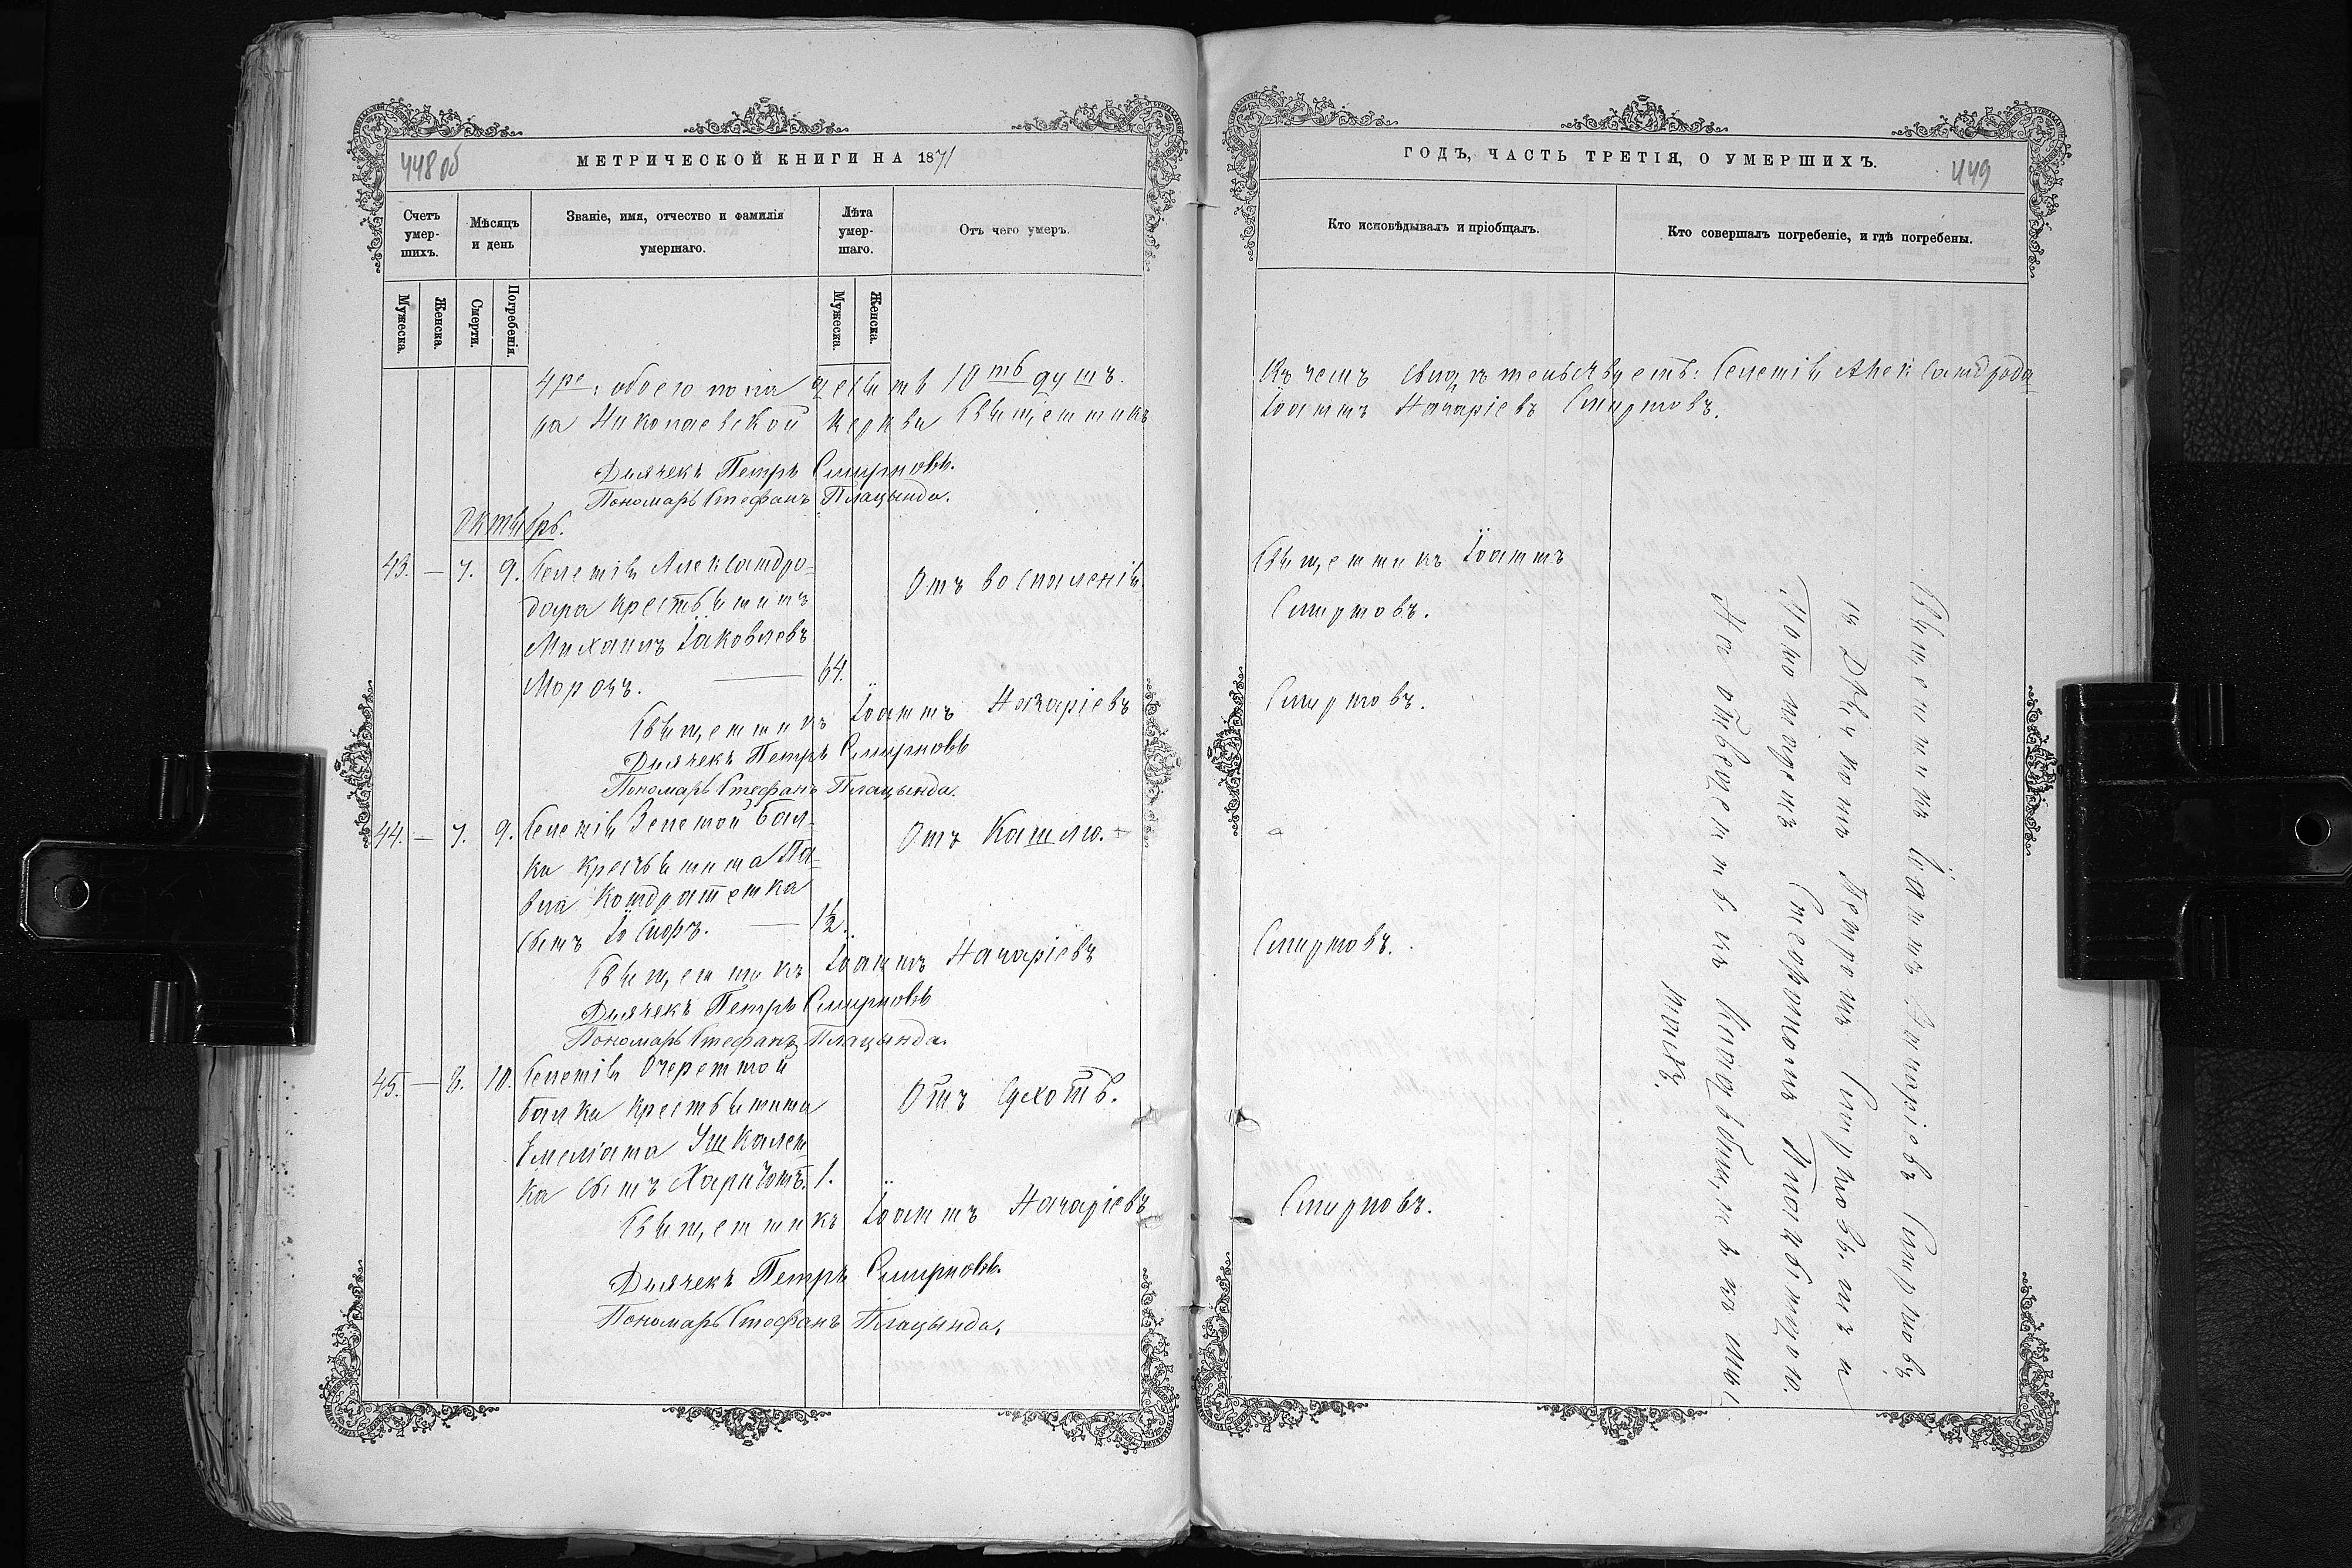 448 об
МЕТРИЧЕСКОЙ КНИГИ НА 1871
Счетъ умер-шихъ.
Мѣсяцъ и день
Званіе, имя, отчество и фамилія умершаго.
Лѣта умер-шаго.
Отъ чего умеръ.
Мужеска.
Женска.
Смерти.
Погребенія.
Мужеска.
Женска.
обоего пола десять 10ть душъ.
ра Николаевской церкви Священникъ
Дьячекъ Петръ Смирновъ.
Пономарь Стефанъ Плацында.
Октябрь.
43. — 7. 9. Селенія Александро-
дара крестьянинъ
Михаилъ Іаковлевъ
Морозъ. — 64.
Отъ воспаленія.
Священникъ Іоаннъ Назаріевъ
Дьячекъ Петръ Смирновъ
Пономарь Стефанъ Плацында.
44. — 7. 9. Селенія Зеленой Бал-
ки крестьянина Па-
вла Кондратенка
сынъ Іосифъ. — 1½.
Отъ Кашлю.
Священникъ Іоаннъ Назаріевъ
Дьячекъ Петръ Смирновъ
Пономарь Стефанъ Плацында.
45. — 8. 10. Селенія Очеретной
балки крестьянина
Емеліана Ушкален
ка сынъ Харитонъ. 1.
Отъ Сухотъ.
Священникъ Іоаннъ Назаріевъ
Дьячекъ Петръ Смирновъ.
Пономарь Стефанъ Плацында.
ГОДЪ, ЧАСТЬ ТРЕТІЯ, О УМЕРШИХЪ.
449
Кто исповѣдывалъ и пріобщалъ.
Кто совершалъ погребеніе, и гдѣ погребены.
Въ чемъ свидѣтельствуетъ: Селенія Александрода
Іоаннъ Назаріевъ Смирновъ.
Священникъ Іоаннъ
Смирновъ.
Смирновъ.
Смирновъ.
Смирновъ.
Священникъ Іоаннъ Назаріевъ Смирновъ
съ Дьячкомъ Петромъ Смирновымъ и
Пономаремъ Стефаномъ Плацындою.
На отведенномъ кладбищѣ